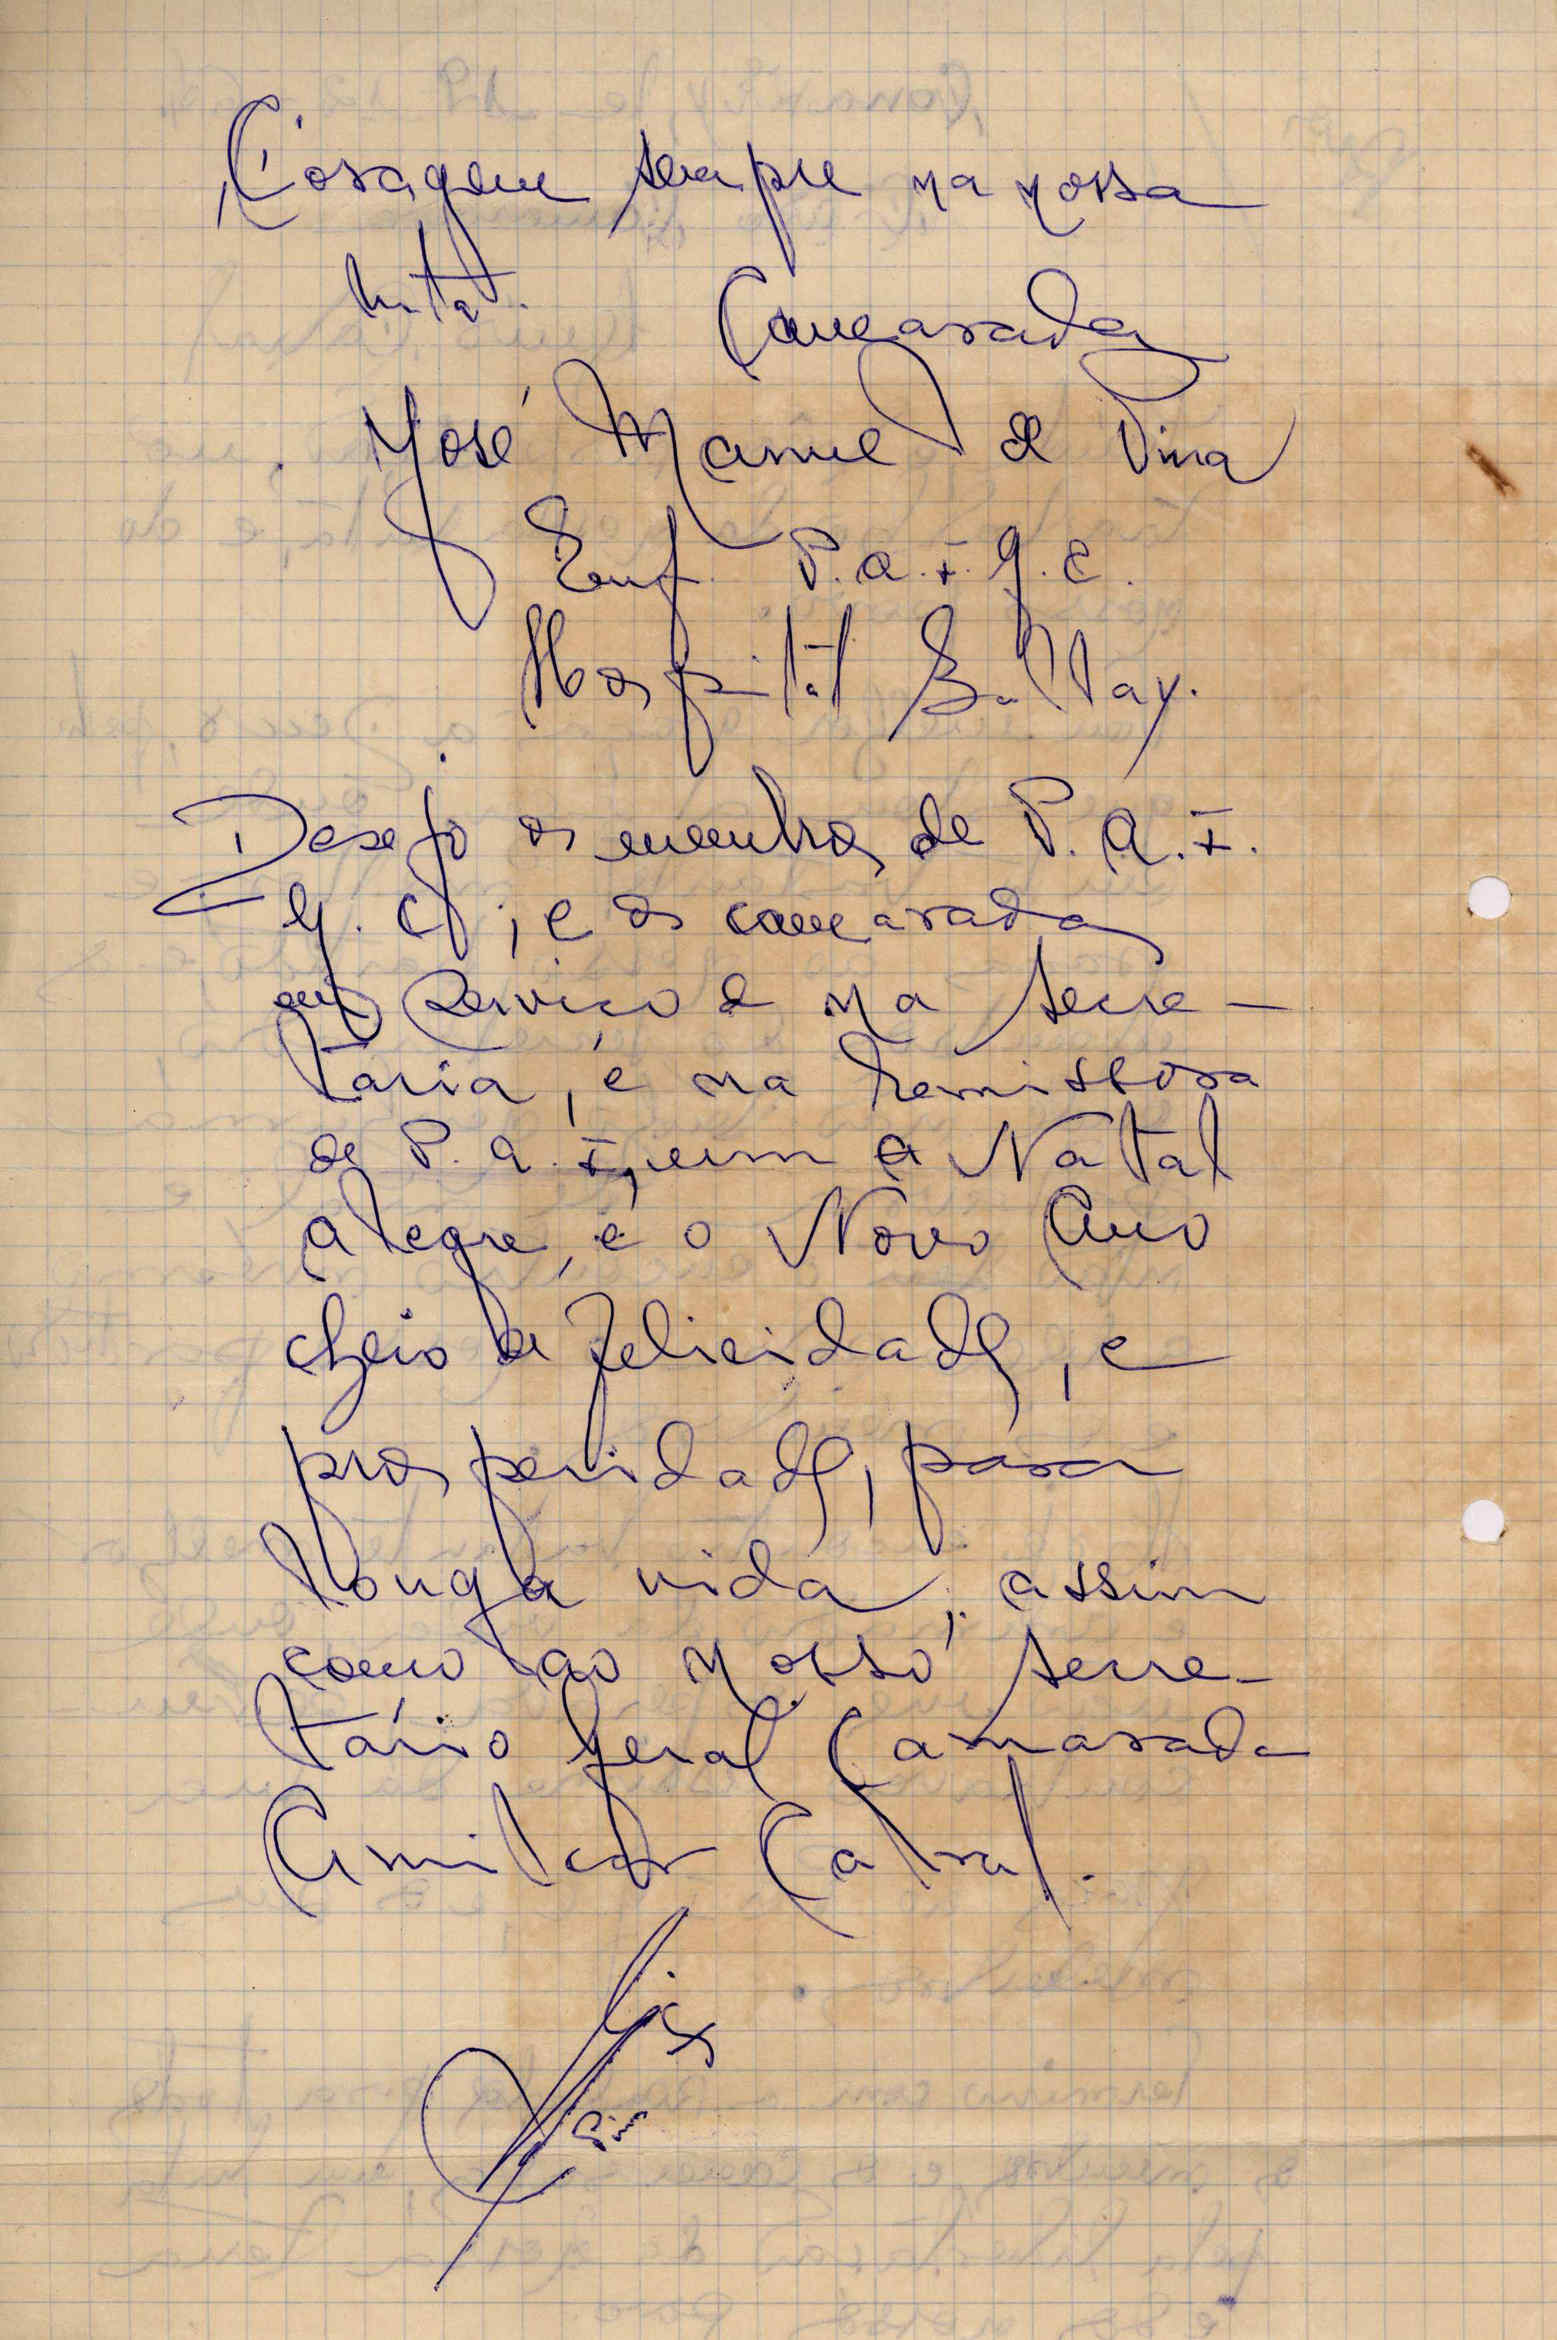 Coragem sempre na nossa
luta. Camarada
José Manuel de Pina
Enf. P.A.I.G.C.
Hospital Ballay.
Desejo os membros de P.A.I.
G.C.; e os camaradas
em Serviço e na secre-
taria, e na hemissora
de P.A.I, um a Natal
alegre, e o Novo Ano
cheio de felicidades, e
prosperidades, para
longa vida, assim
como ao nosso secre-
tário geral Camarada
Amilcar Cabral.